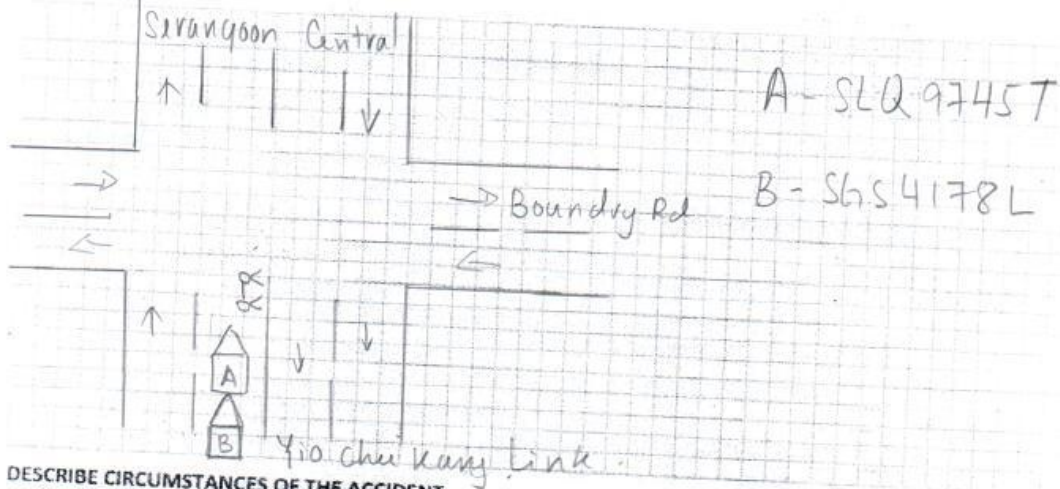 Serangoon Central
A - SLQ 9745T
B - SGS 4178L
Boundry Rd
A
B
Yio chu Kang Link
DESCRIBE CIRCUMSTANCES OF THE ACCIDENT